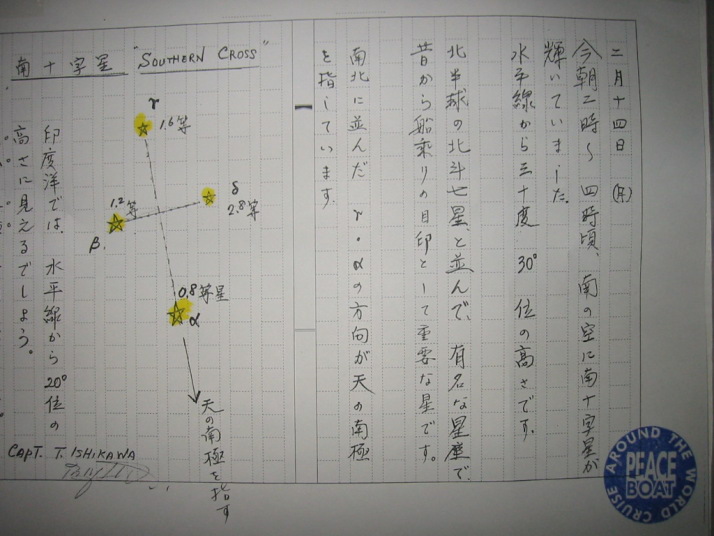 二月十四日（月）
今朝二時〜四時頃、南の空に南十字星が
輝いていました。
水平線から三十度 30° 位の高さです。
北半球の北斗七星と並んで、有名な星座で、
昔から船乗りの目印として重要な星です。
南北に並んだ γ・αの方向が天の南極
を指しています。
南十字星 "SOUTHERN CROSS"
γ
1.6等
δ
2.8等
1.2等
β.
0.8等星
α
天の南極を指す
印度洋では、水平線から20°位の
高さに見えるでしょう。
CAPT. T. ISHIKAWA
AROUND THE WORLD CRUISE
PEACE
BOAT